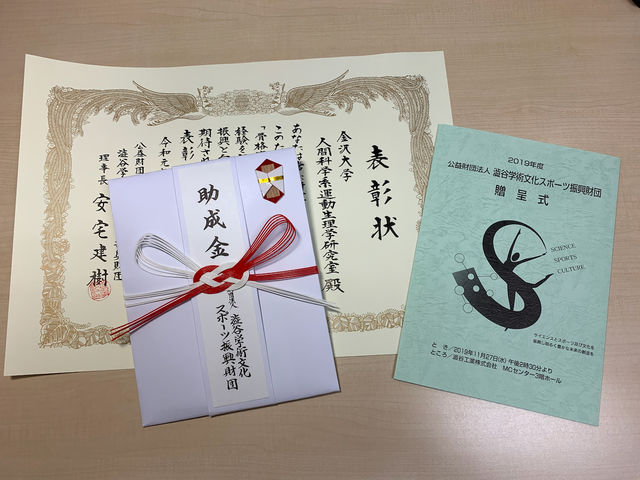 表彰状
金沢大学
人間科学系運動生理学研究室 殿
あなた
この
「骨格
経験を
振興と
期待さ
表彰
令和元
公益財団
澁谷学
理事長 安宅建樹
助成金
澁谷学術文化
スポーツ振興財団
2019年度
公益財団法人 澁谷学術文化スポーツ振興財団
贈呈式
SCIENCE
SPORTS
CULTURE
サイエンスとスポーツ及び文化を
振興し明るく豊かな未来の創造を
と き/2019年11月27日(水) 午後2時30分より
ところ/澁谷工業株式会社 MCセンター3階ホール